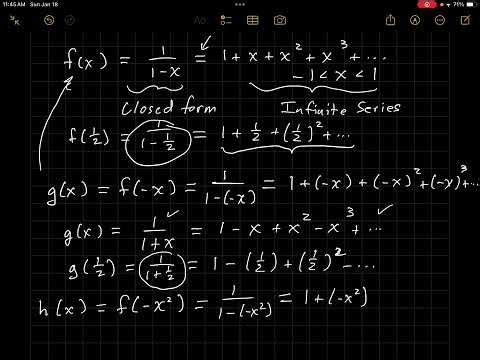 11:45 AM Sun Jan 18
71%
f(x) = 1/(1-x) = 1 + x + x² + x³ + ...
-1 < x < 1
Closed form Infinite Series
f(1/2) = 1/(1 - 1/2) = 1 + 1/2 + (1/2)² + ...
g(x) = f(-x) = 1/(1-(-x)) = 1 + (-x) + (-x)² + (-x)³ + ...
g(x) = 1/(1+x) = 1 - x + x² - x³ + ...
g(1/2) = 1/(1+1/2) = 1 - (1/2) + (1/2)² - ...
h(x) = f(-x²) = 1/(1-(-x²)) = 1 + (-x²)